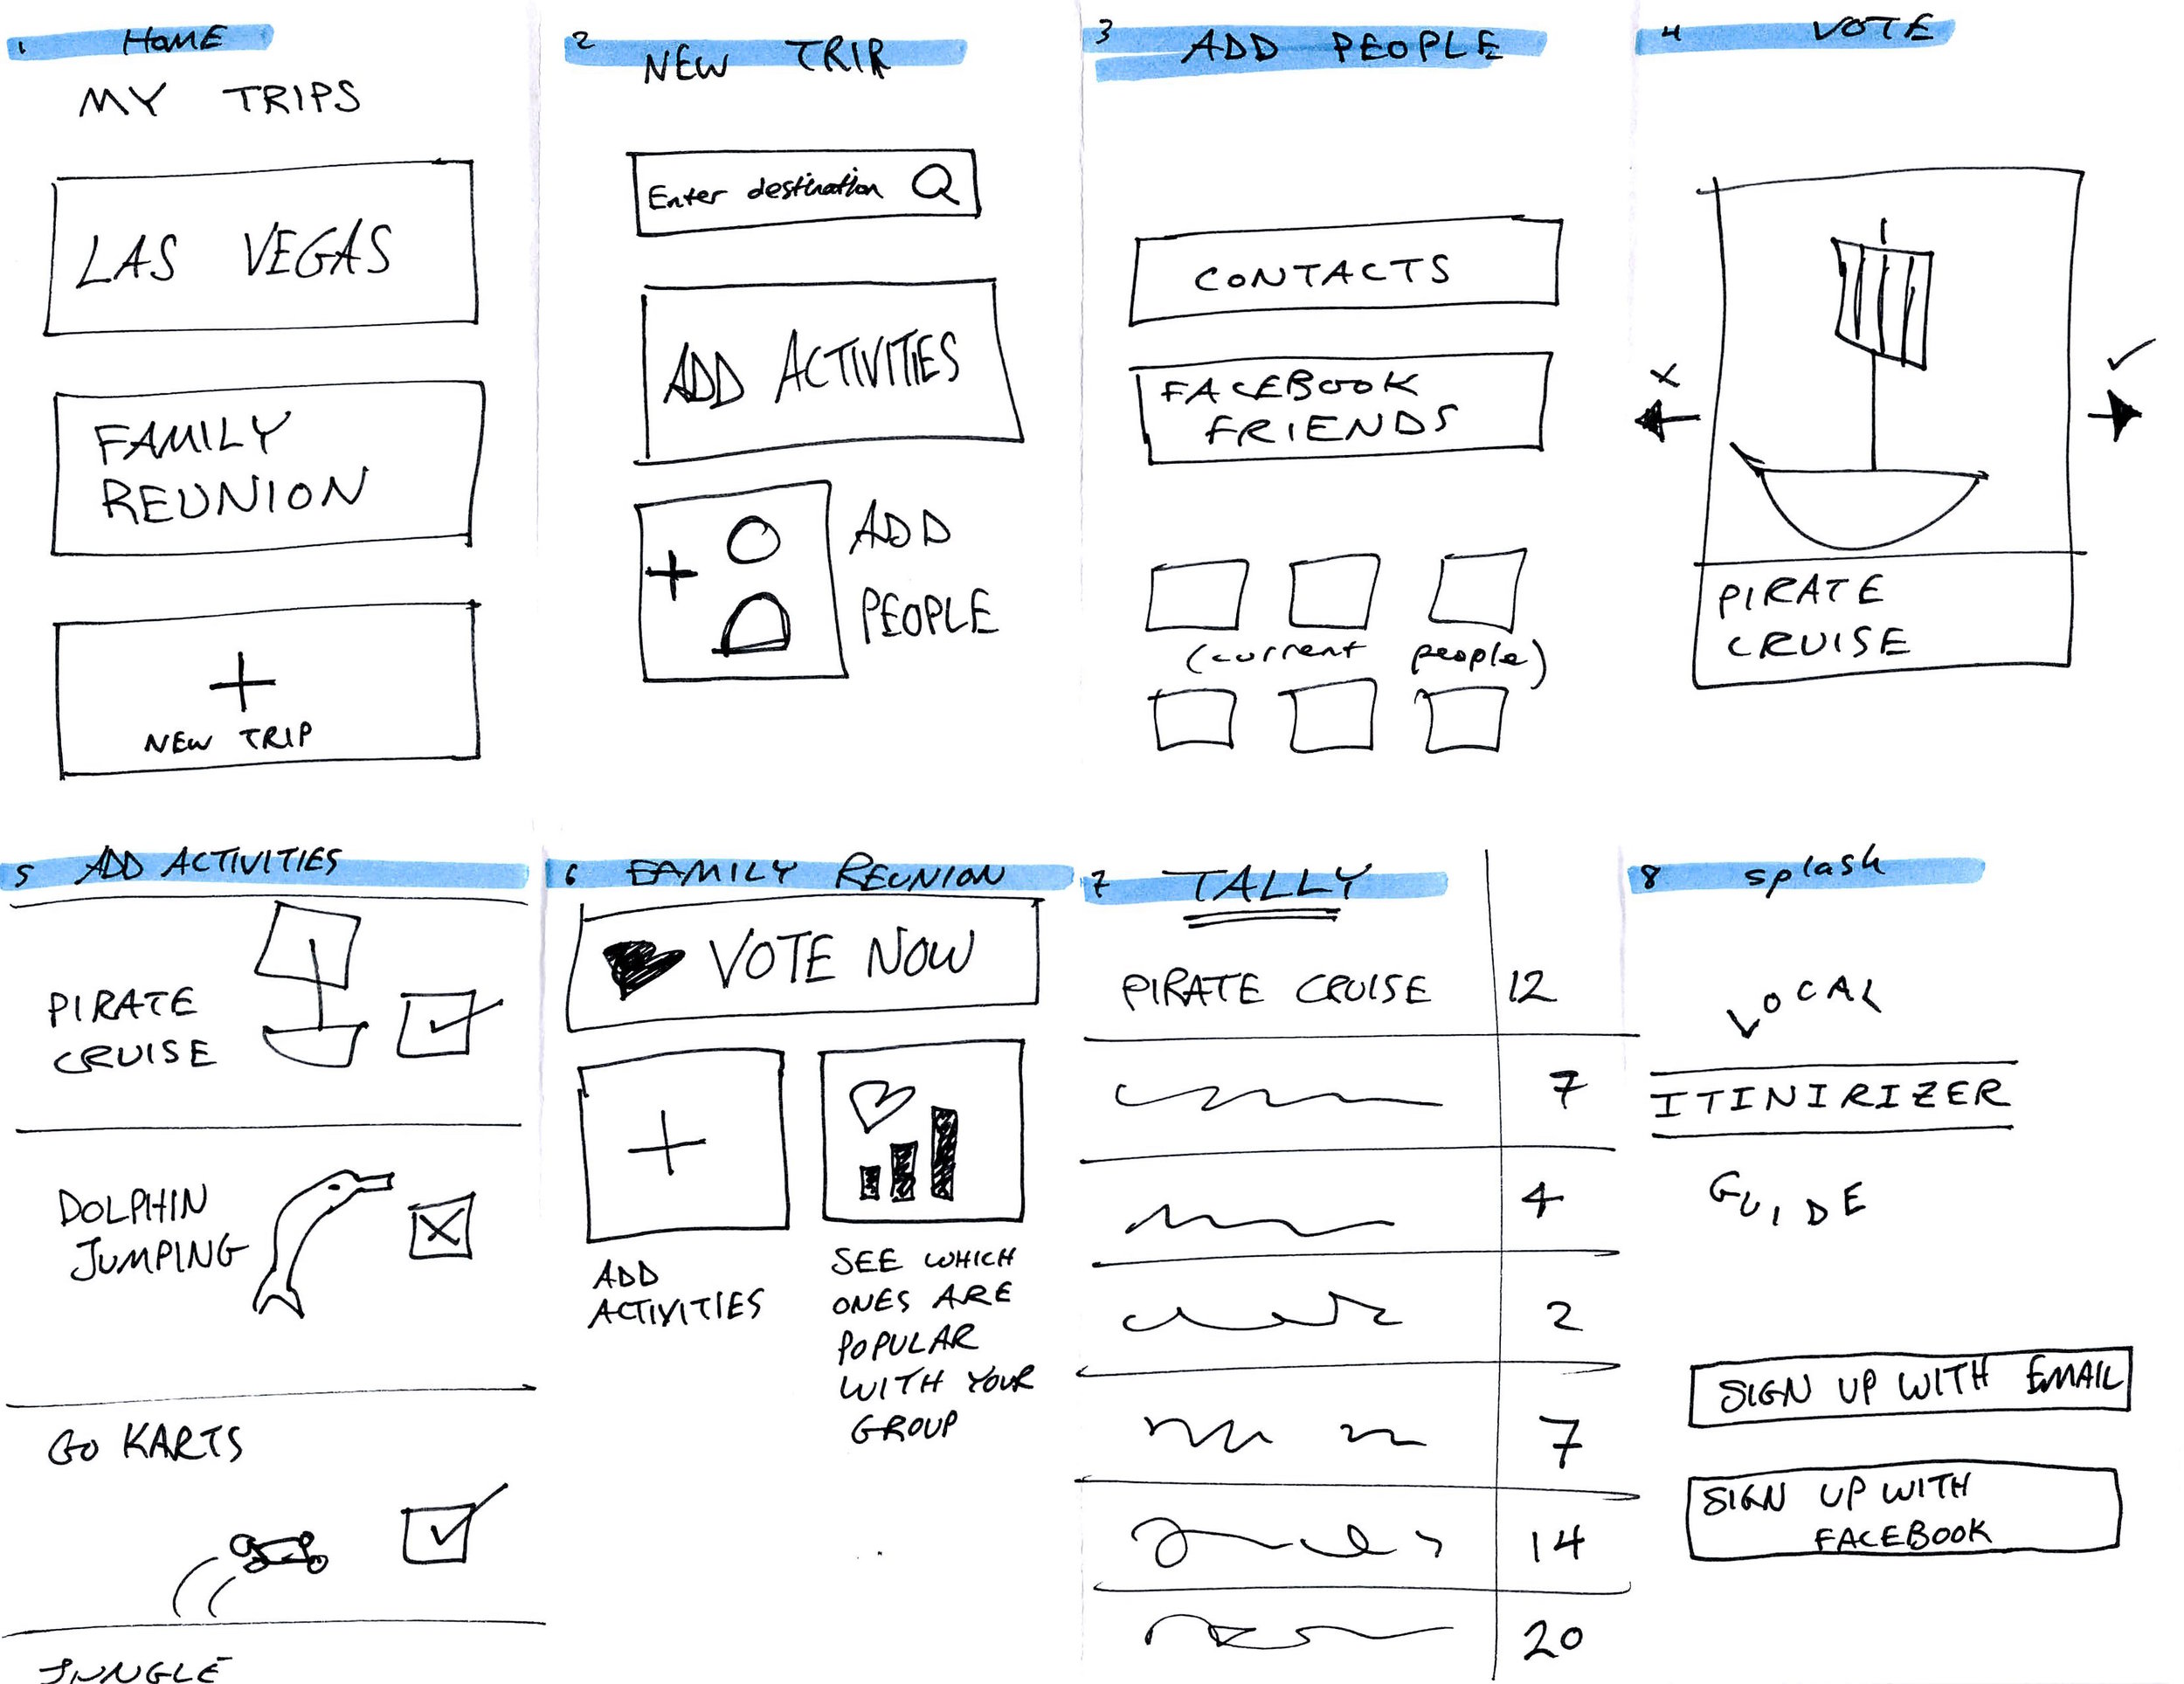 1 HOME
MY TRIPS
LAS VEGAS
FAMILY
REUNION
+
NEW TRIP
2 NEW TRIP
Enter destination
ADD ACTIVITIES
+
ADD
PEOPLE
3 ADD PEOPLE
CONTACTS
FACEBOOK
FRIENDS
(current people)
4 VOTE
PIRATE
CRUISE
5 ADD ACTIVITIES
PIRATE
CRUISE
DOLPHIN
JUMPING
GO KARTS
JUNGLE
6 FAMILY REUNION
VOTE NOW
+
ADD
ACTIVITIES
SEE WHICH
ONES ARE
POPULAR
WITH YOUR
GROUP
7 TALLY
PIRATE CRUISE 12
7
4
2
7
14
20
8 splash
LOCAL
ITINIRIZER
GUIDE
SIGN UP WITH EMAIL
SIGN UP WITH
FACEBOOK